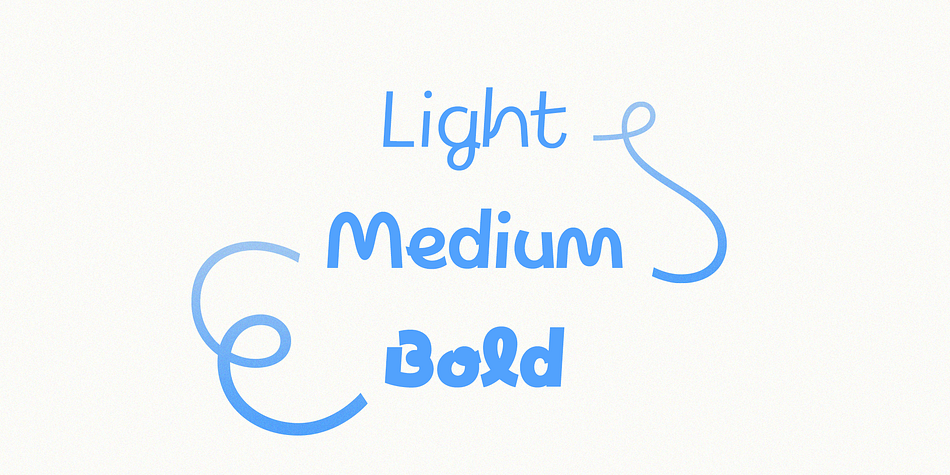 Light
Medium
Bold